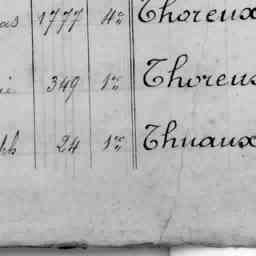 as 1777 4e Thoreux
ie 349 1re Thoreux
ph 24 1re Thuaux